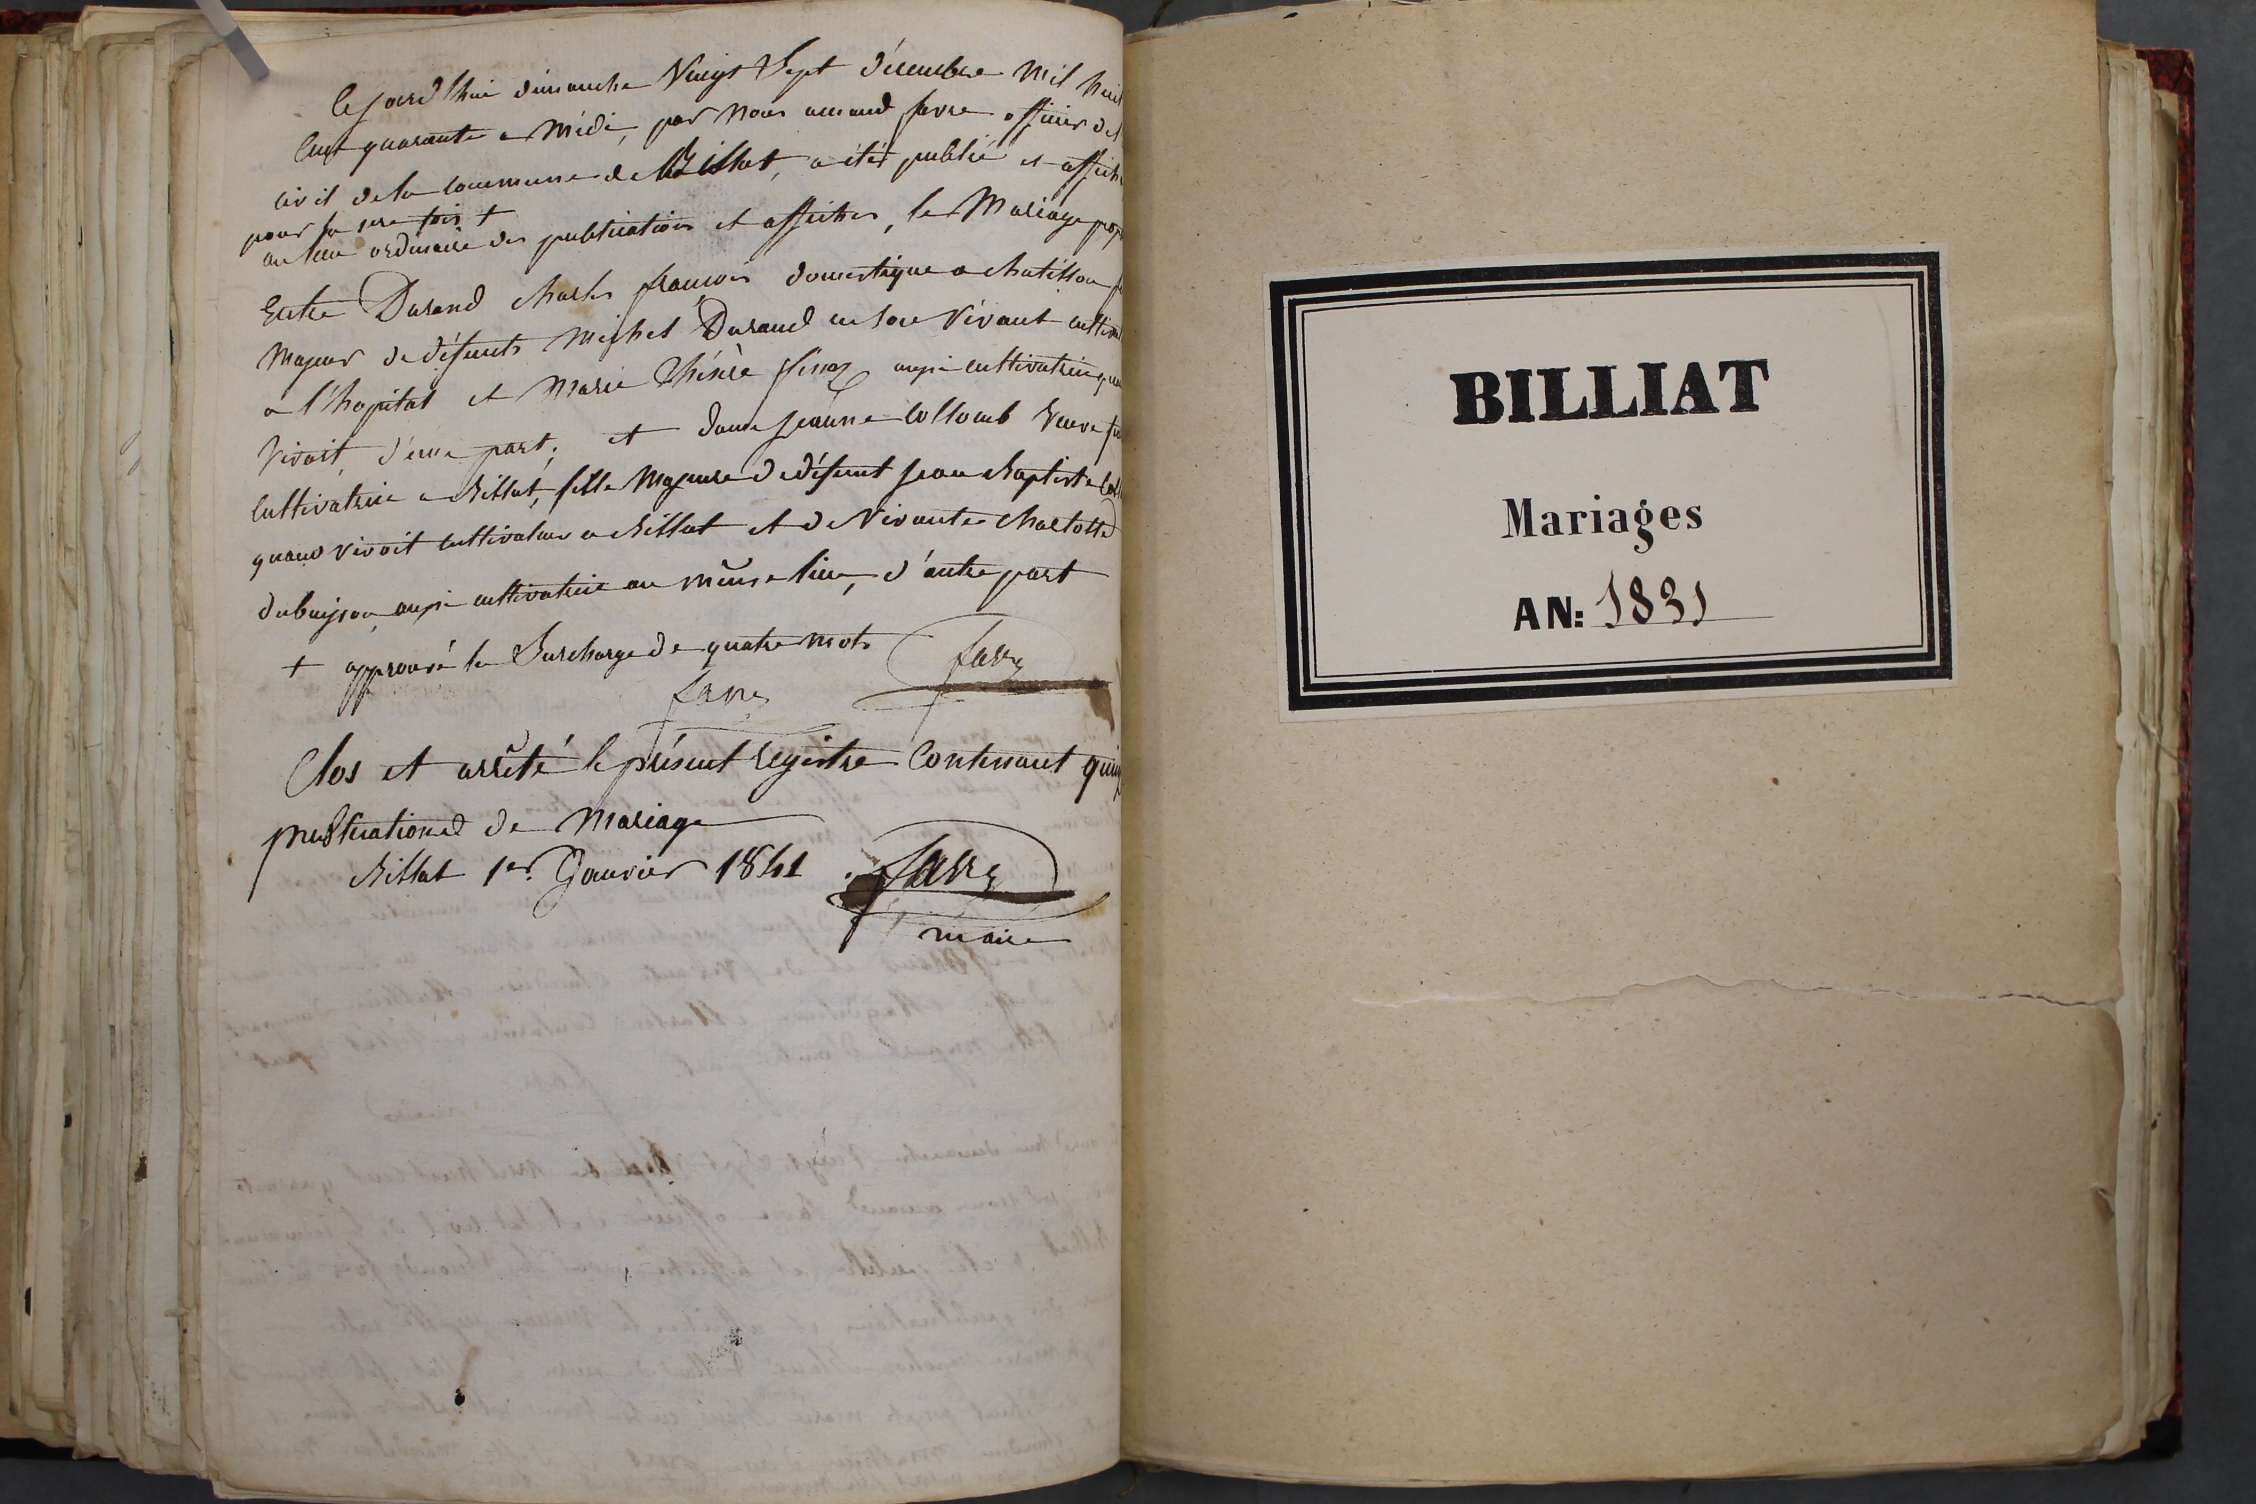 Cejourd'hui dimanche Vingt Sept décembre mil huit
Cent quarante a midi, par nous amand favre officier de l
Civil de la commune de Billiat, a été publié et affiché
pour la 1ere fois +
au lieu ordinaire des publications et affiches, le Mariage proj
Entre Durand charles françois domestique a chatillon f
Majeur de défunts Michel Durand en son vivant cultiva
a l'hopital et Marie Thérèse aussi cultivatrice qua
Vivait, d'une part; et dame jeanne Collomb Veuve
Cultivatrice a Billiat, fille Majeure de défunt jean Baptiste Col
quand vivait cultivateur a Billiat et de Vivante charlotte
dubuisson aussi cultivatrice au même lieu, d'autre part
+ approuvé la Surcharge de quatre mots
favre
favre
Clos et arrêté le présent registre Contenant
publications de Mariage
Billiat 1er. Janvier 1841
favre
maire
BILLIAT
Mariages
AN: 1831